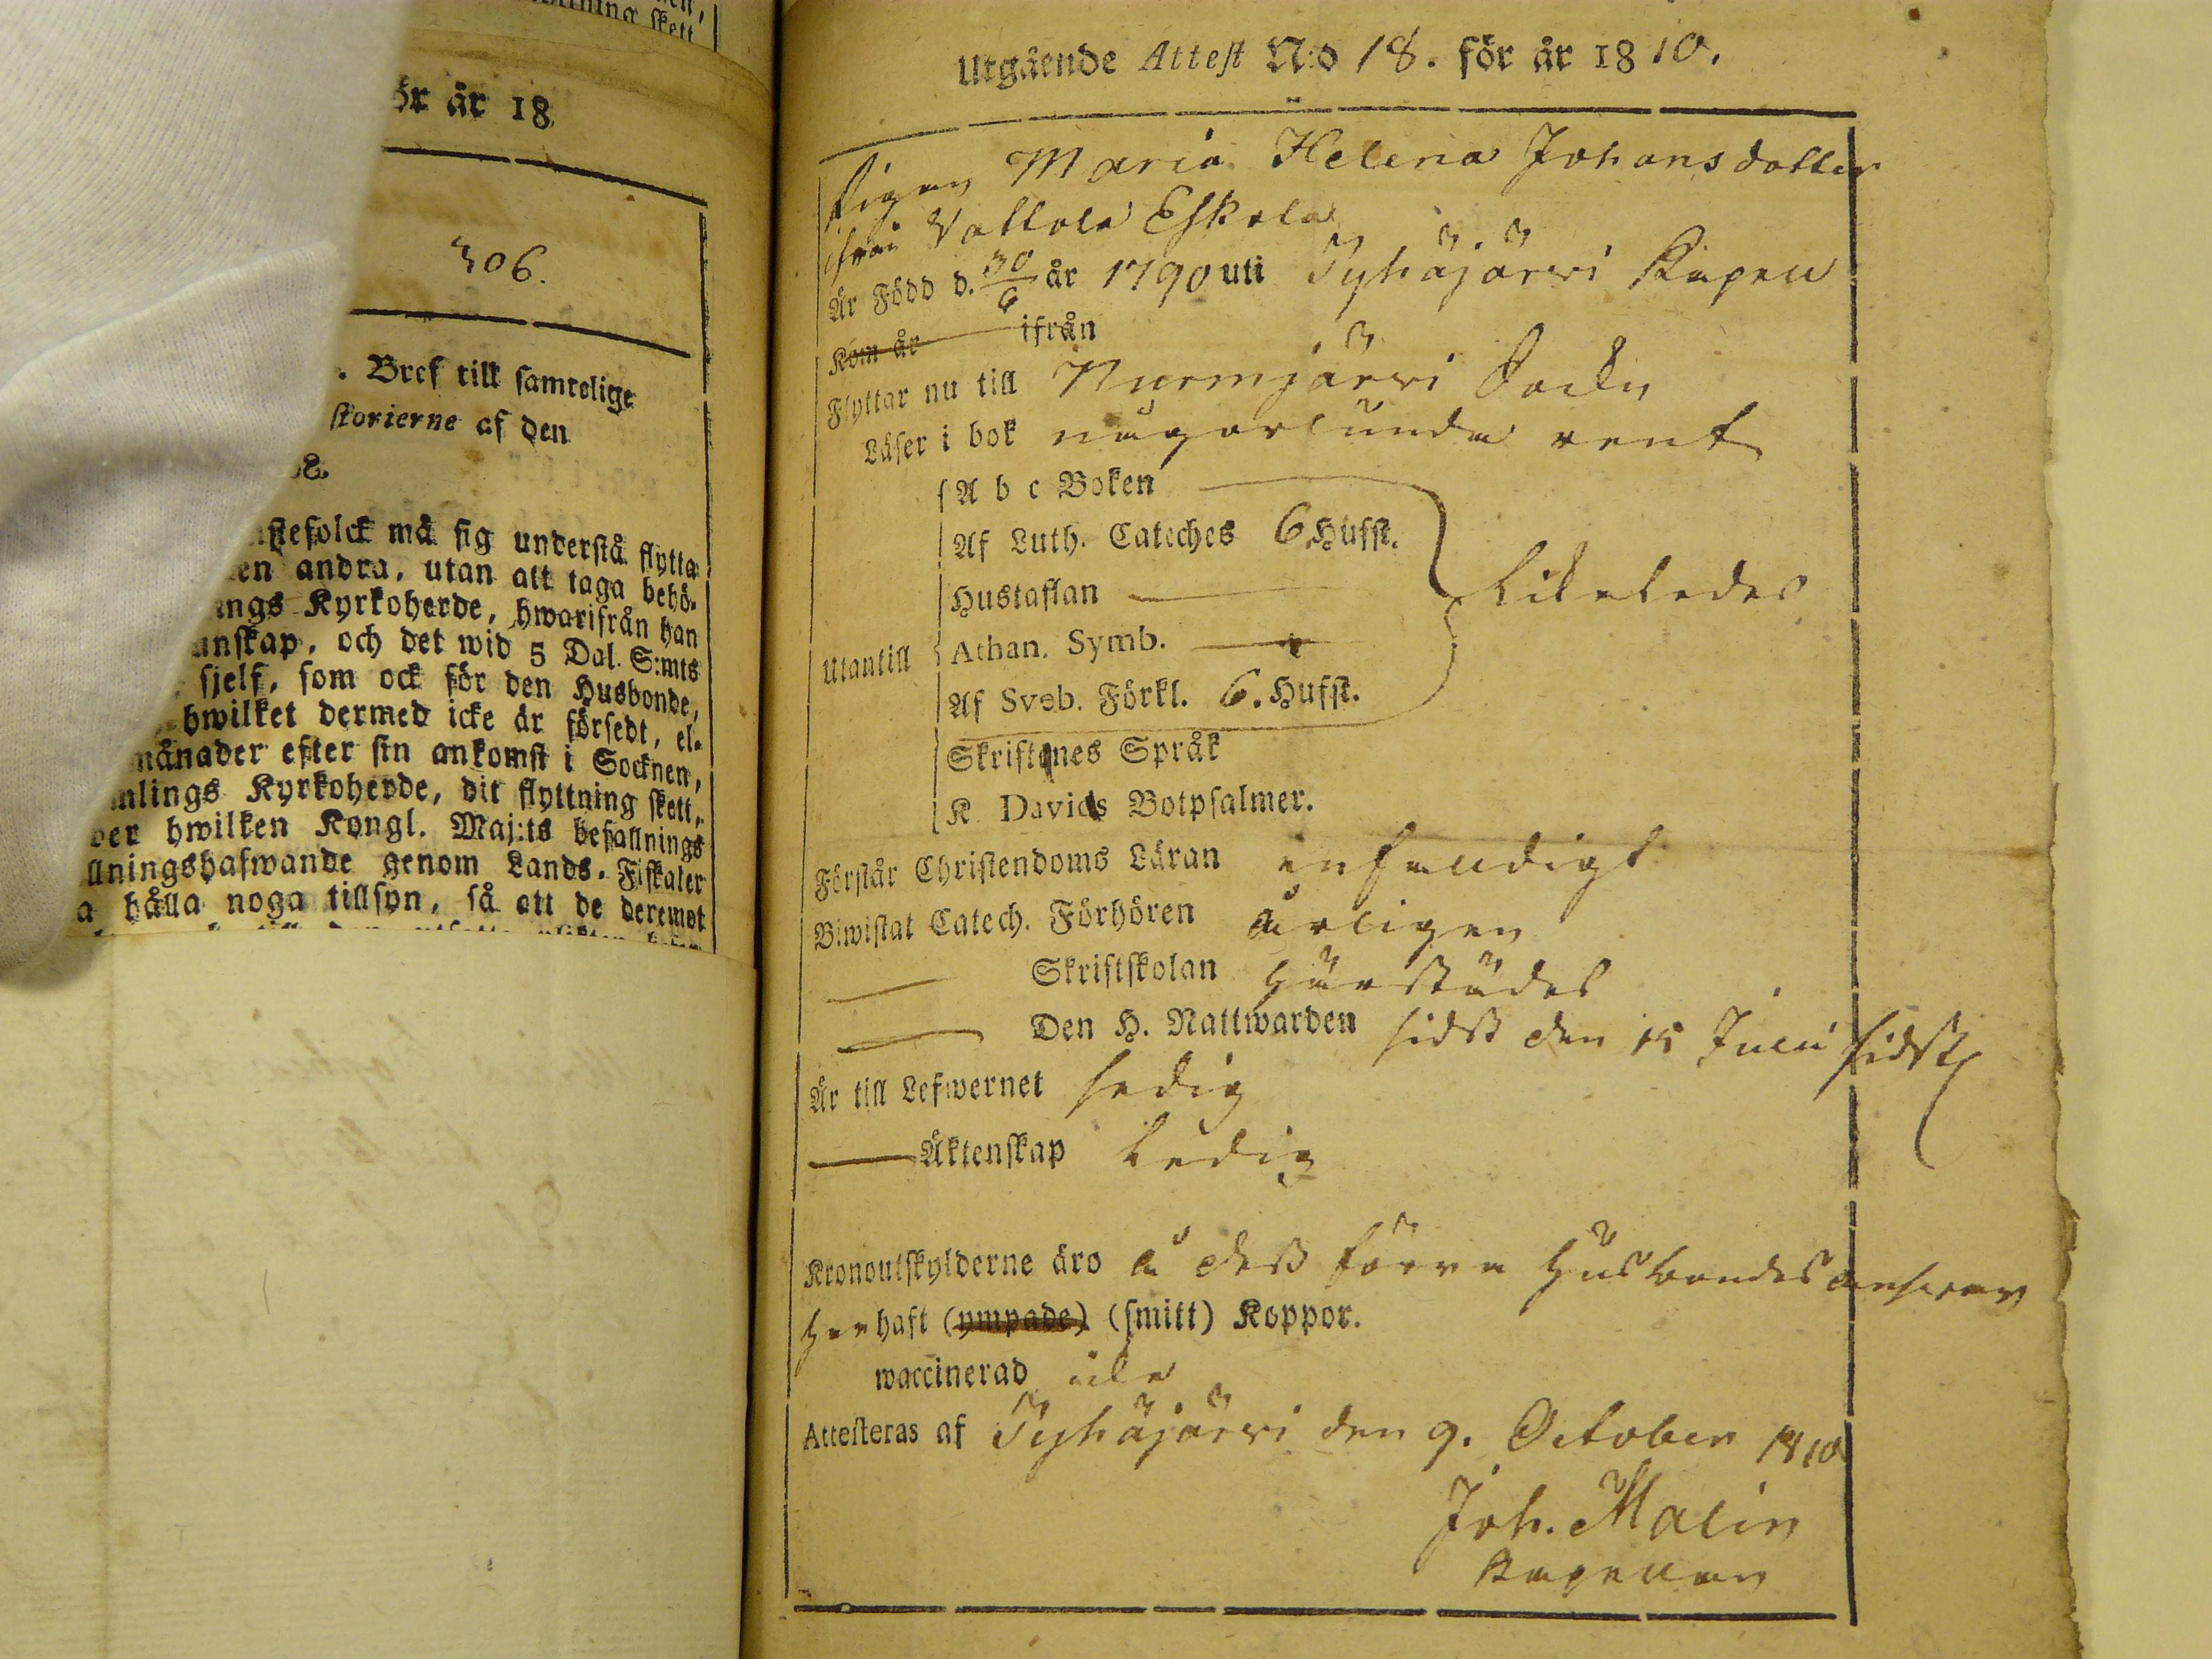 ning skett
ör år 18
306.
. Bref till samtelige
storierne af den
8.
stefolck må sig understå flytta
en andra, utan att taga behö-
ings Kyrkoherde, hwarifrån han
unskap, och det wid 5 Dal. S:mts
sjelf, som ock för den Husbonde,
hwilket dermed icke är försedt, el-
månader efter sin ankomst i Socknen,
mlings Kyrkoherde, dit flyttning skett,
der hwilken Kongl. Maj:ts befallnings
llningshafwande genom Lands-Fiskaler
a hålla noga tillsyn, så att de deremot
Utgående Attest N:o 18. för år 1810.
Pigan Maria Helena Johansdotter
ifrån Vattola Eskola
Är Född d. 30/6 år 1790 uti Pyhäjärvi Kapell
Kom år ifrån
Flyttar nu till Nurmjärvi Sockn
Läser i bok någorlunda rent
A b c Boken
Af Luth. Cateches 6 Hufst.
Hustaflan
Likaledes
Athan. Symb.
Utantill
Af Sveb. Förkl. 6. Hufst.
Skriftenes Språk
K Davids Botpsalmer.
Förstår Christendoms Läran enfaldigt
Biwistat Catech. Förhören årligen
Skriftskolan härstädes
Den H. Nattwarden sidst den 15 Julii sidstl
Är till Lefwernet sedig
Äktenskap Ledig
Kronoutskylderne äro å dess förra Husbondes answar
Har haft (ympade) (smitt) Koppor.
waccinerad icke
Attesteras af Pyhäjärvi den 9. October 1810
Joh. Malin
Kapellan